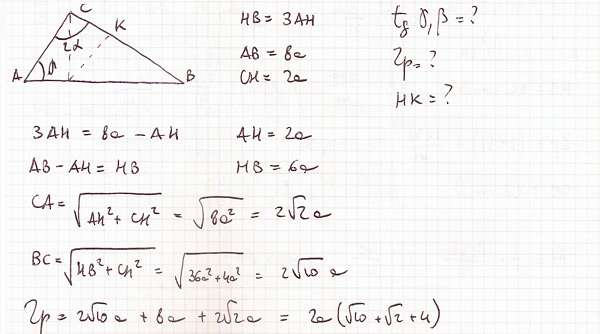 C
K
2α
A γ B
HB = 3AH
AB = 8a
CH = 2a
tg γ, β = ?
2p = ?
HK = ?
3AH = 8a - AH AH = 2a
AB - AH = HB HB = 6a
CA = √AH² + CH² = √8a² = 2√2 a
BC = √HB² + CH² = √36a² + 4a² = 2√10 a
2p = 2√10 a + 8a + 2√2 a = 2a (√10 + √2 + 4)